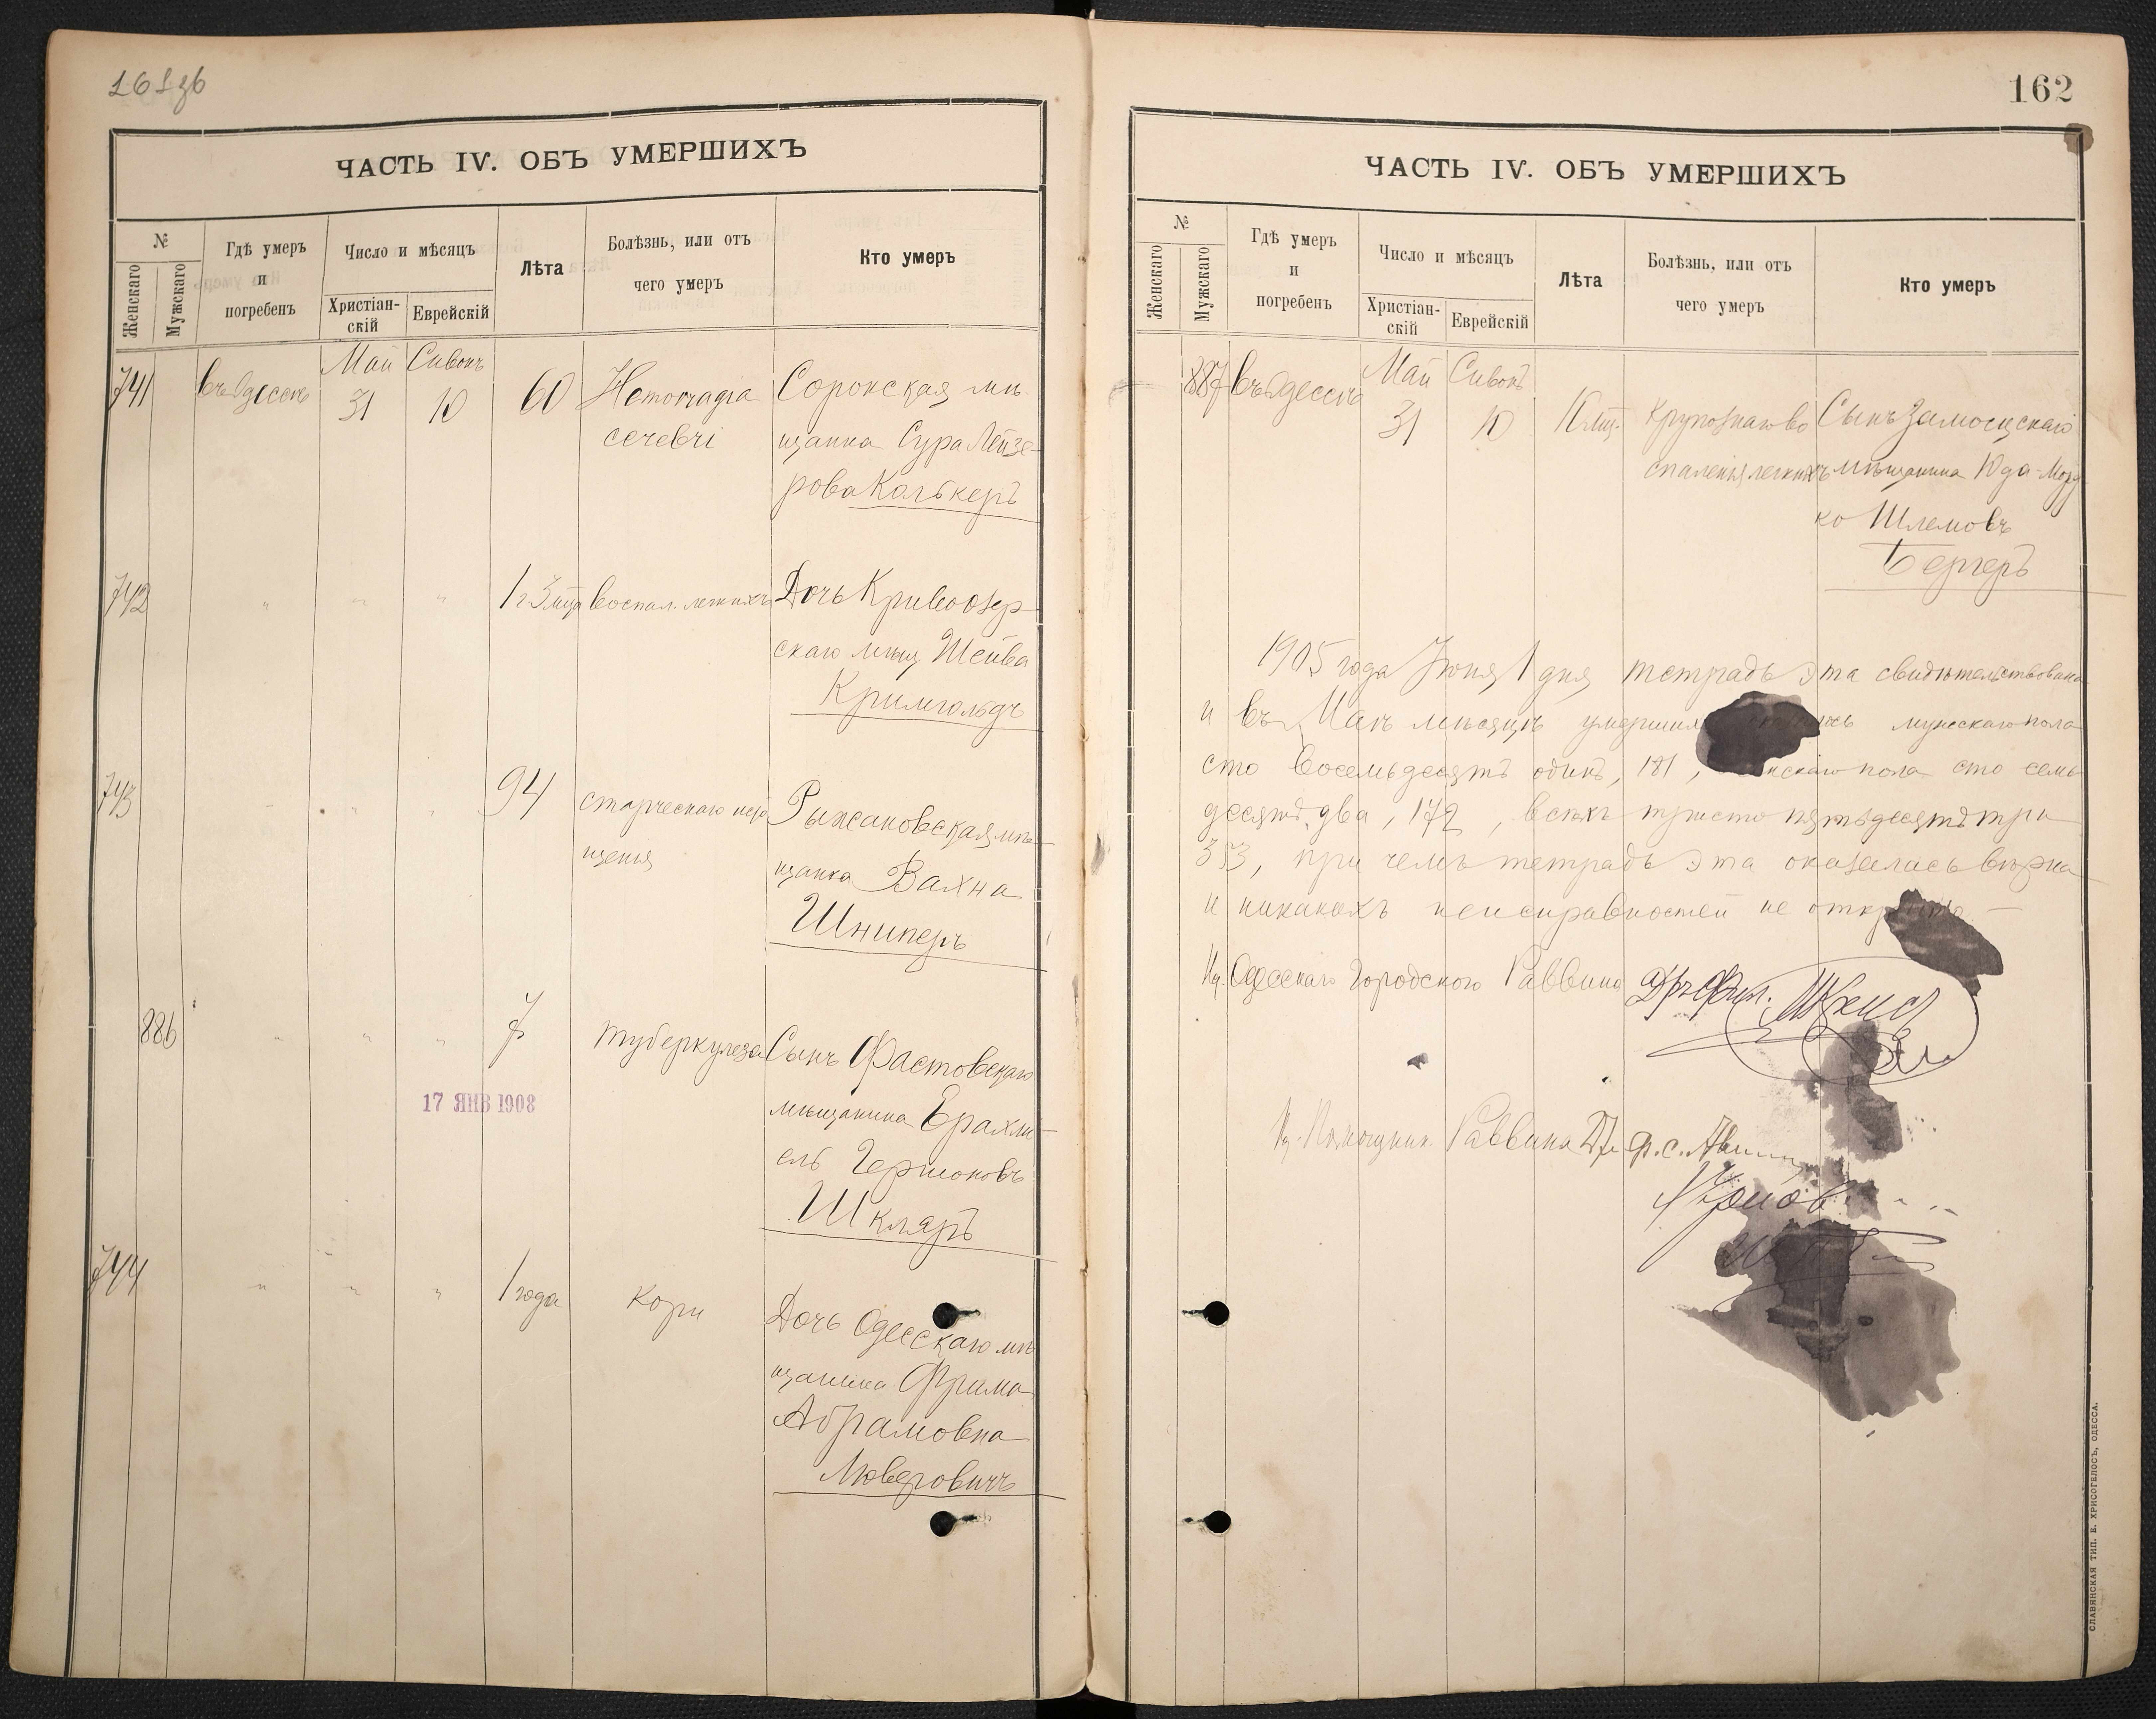 161 зб
ЧАСТЬ IV. ОБЪ УМЕРШИХЪ
№
Женскаго
Мужскаго
Гдѣ умеръ и погребенъ
Число и мѣсяцъ
Христіанскій
Еврейскій
Лѣта
Болѣзнь, или отъ чего умеръ
Кто умеръ
741 въ Одессѣ Май 31 Сивонъ 10 60
Сорокская мѣ-
щанка Сура Лейзе-
рова Калькеръ
742 " " " 1 г 3 мца воспал. легкихъ Дочь Кривоозер-
скаго мѣщ. Шейва
Кримгольдъ
743 " " " 94 старческаго исто
щенія
Рыжановская мѣ-
щанка Вахна
Шниперъ
886 " " " 7 туберкулеза Сынъ Фастовскаго
мѣщанина Ерахми-
ель Гершоновъ
Шкляръ
17 ЯНВ 1908
744 " " " 1 года кори
Дочь Одесскаго мѣ
щанина Фрима
Абрамовна
162
ЧАСТЬ IV. ОБЪ УМЕРШИХЪ
№
Женскаго
Мужскаго
Гдѣ умеръ и погребенъ
Число и мѣсяцъ
Христіанскій
Еврейскій
Лѣта
Болѣзнь, или отъ чего умеръ
Кто умеръ
887 въ Одессѣ Май 31 Сивонъ 10
крупознаго во
спаленія легкихъ
Сынъ Замосцскаго
мѣщанина Юда-Морд
ко Шлемовъ
Бергеръ
1905 года Іюня 1 дня тетрадь эта свидѣтельствована
и въ Маѣ мѣсяцѣ умершихъ мужескаго пола
сто восемьдесятъ одинъ, 181, пола сто семь
десятъ два, 172, всѣхъ триста пятьдесятъ три
353, при чемъ тетрадь эта оказалась вѣрна
и никакихъ неисправностей не открыто.
И.д. Одесскаго Городского Раввина
И.д. Помощник. Раввина
СЛАВЯНСКАЯ ТИП. Е. ХРИСОГЕЛОСЪ, ОДЕССА.